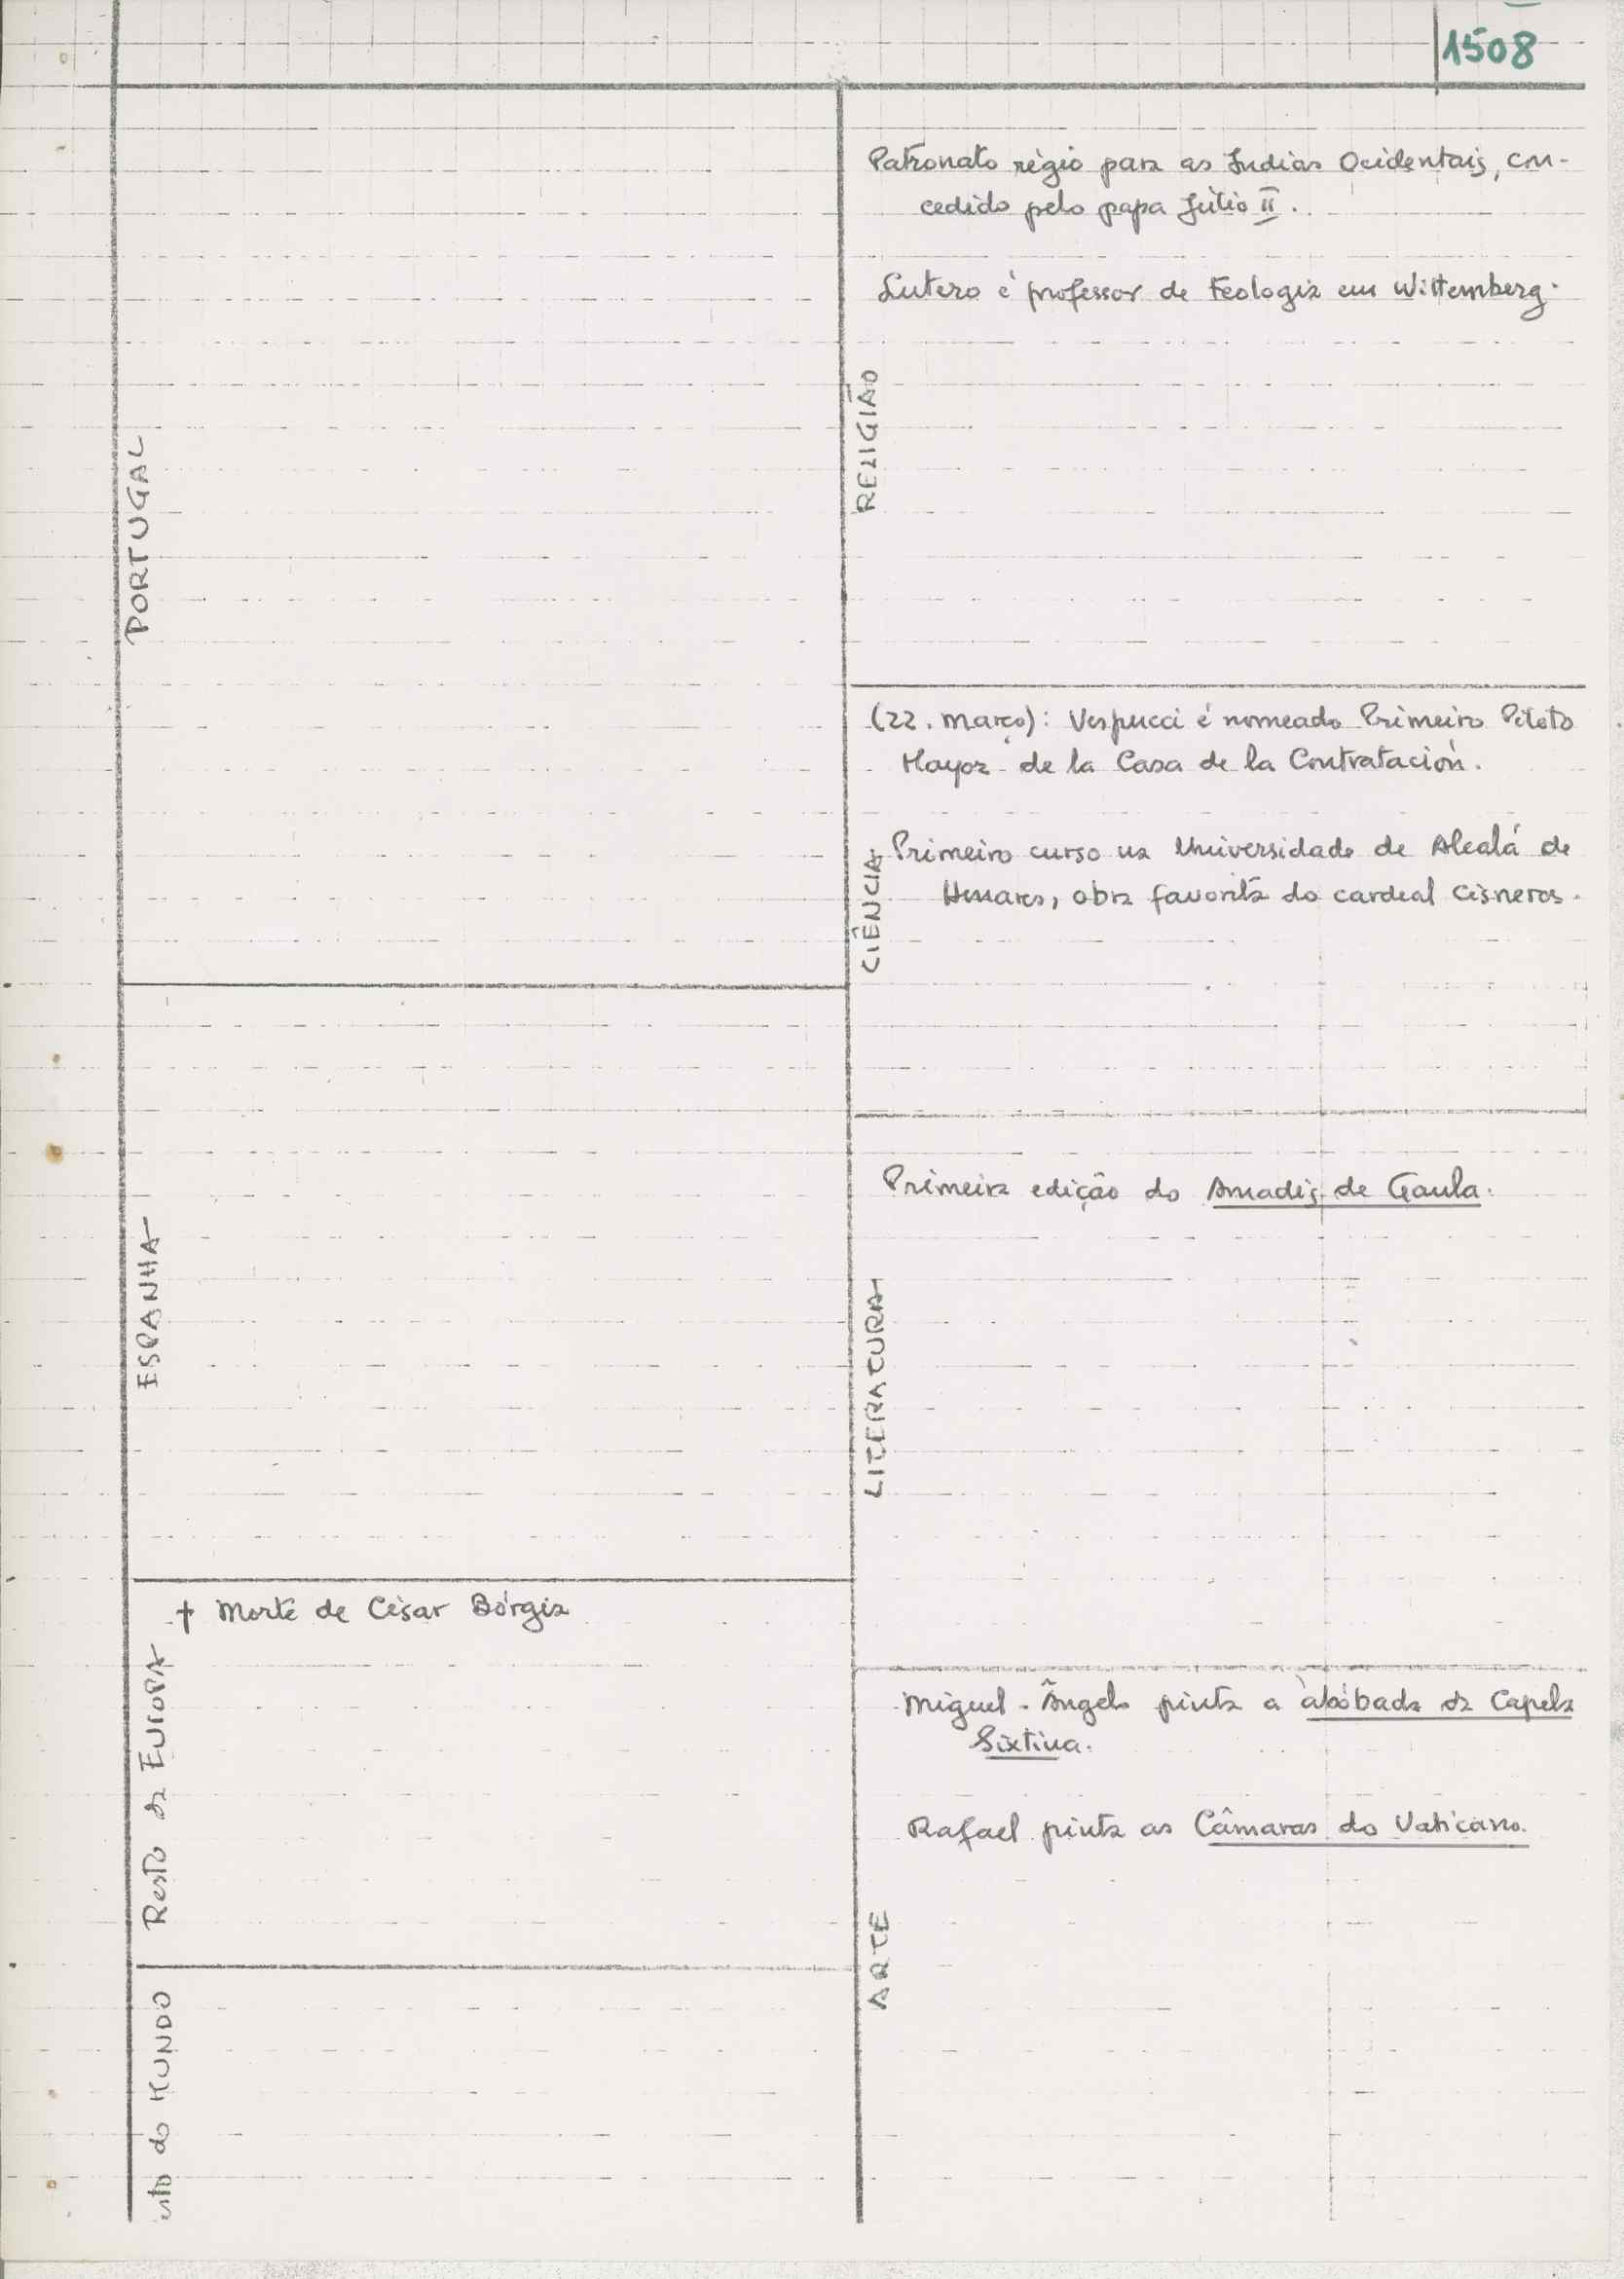 1508
PORTUGAL
ESPANHA
† Morte de César Bórgia
Resto da EUROPA
esto do MUNDO
Patronato régio para as Indias Ocidentais, con-
cedido pelo papa Júlio II.
Lutero é professor de Teologia em Wittemberg.
RELIGIÃO
(22. março): Vespucci é nomeado Primeiro Piloto
Mayor de la Casa de la Contratación.
Primeiro curso na Universidade de Alcalá de
Henares, obra favorita do cardeal Cisneros.
CIÊNCIA
Primeira edição do Amadis de Gaula.
LITERATURA
Miguel-Ângelo pinta a abóbada da Capela
Sixtina.
Rafael pinta as Câmaras do Vaticano.
ARTE